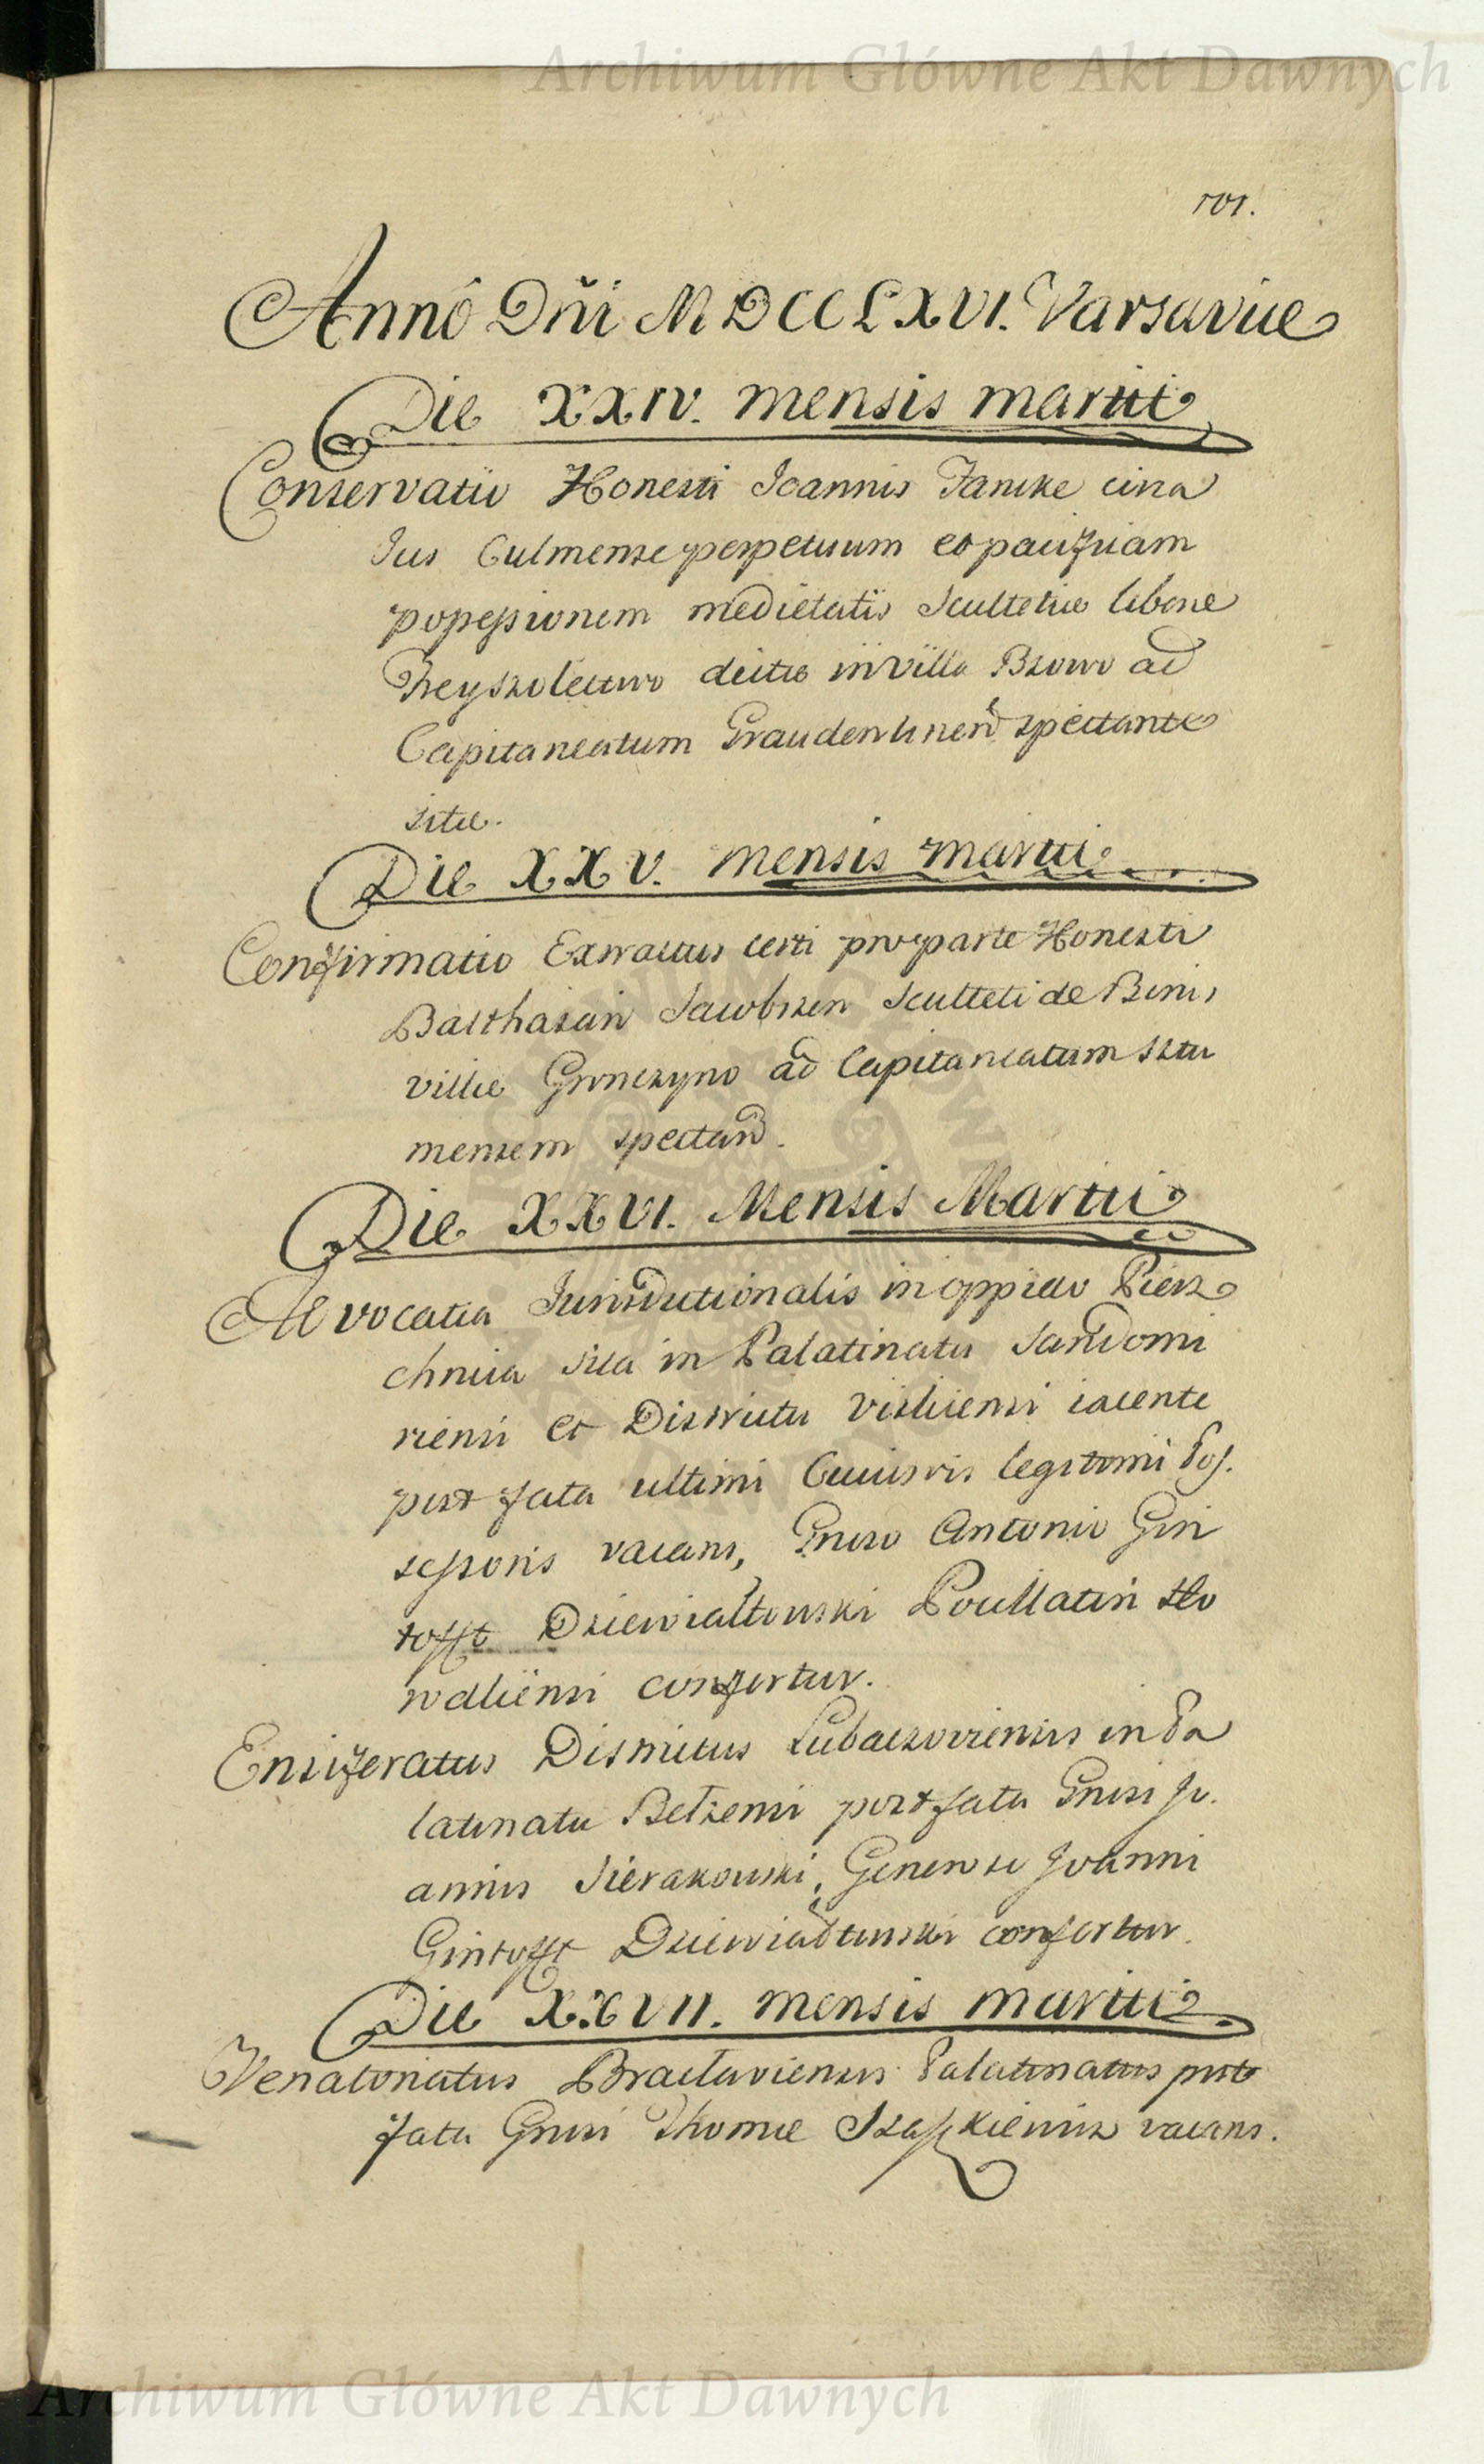 Archiwum Główne Akt Dawnych
101.
Anno Dñi MDCCLXVI. Varsaviæ
Die XXIV. mensis martii
Conservatio Honesti Joannis Jancke circa
Jus Culmense perpetuum et pacificam
possessionem medietatis Scultetiæ liberæ
dictæ in villa Bzowo ad
Capitaneatum spectante
sitæ.
Die XXV. mensis martii
Confirmatio Extractus certi pro parte Honesti
Balthasari Jacobsen Sculteti de Bonis
villæ Gronczyno ad Capitaneatum Sztu
mensem spectand.
Die XXVI. Mensis Martii
Advocatia Jurisdictionalis in oppido Pierz
chnica sita in Palatinatu Sandomi
riensi et Districtu Visliciensi iacente
post fata ultimi Cuiusvis legitimi Pos.
sessoris vacans, Gnoso Antonio Gin
tofft Dziewiałtowski Pocillatori Ko
waliensi confertur.
Ensiferatus Districtus Lubaczoviensis in Pa
latinatu Belzensi post fata Gnosi Jo.
annis Sierakowski, Generoso Joanni
Gintofft Dziewiałtowski confertur.
Die XXVII. mensis martii
Venatoriatus Braclaviensis Palatinatus post
fata Gnosi Thomæ vacans.
Archiwum Główne Akt Dawnych